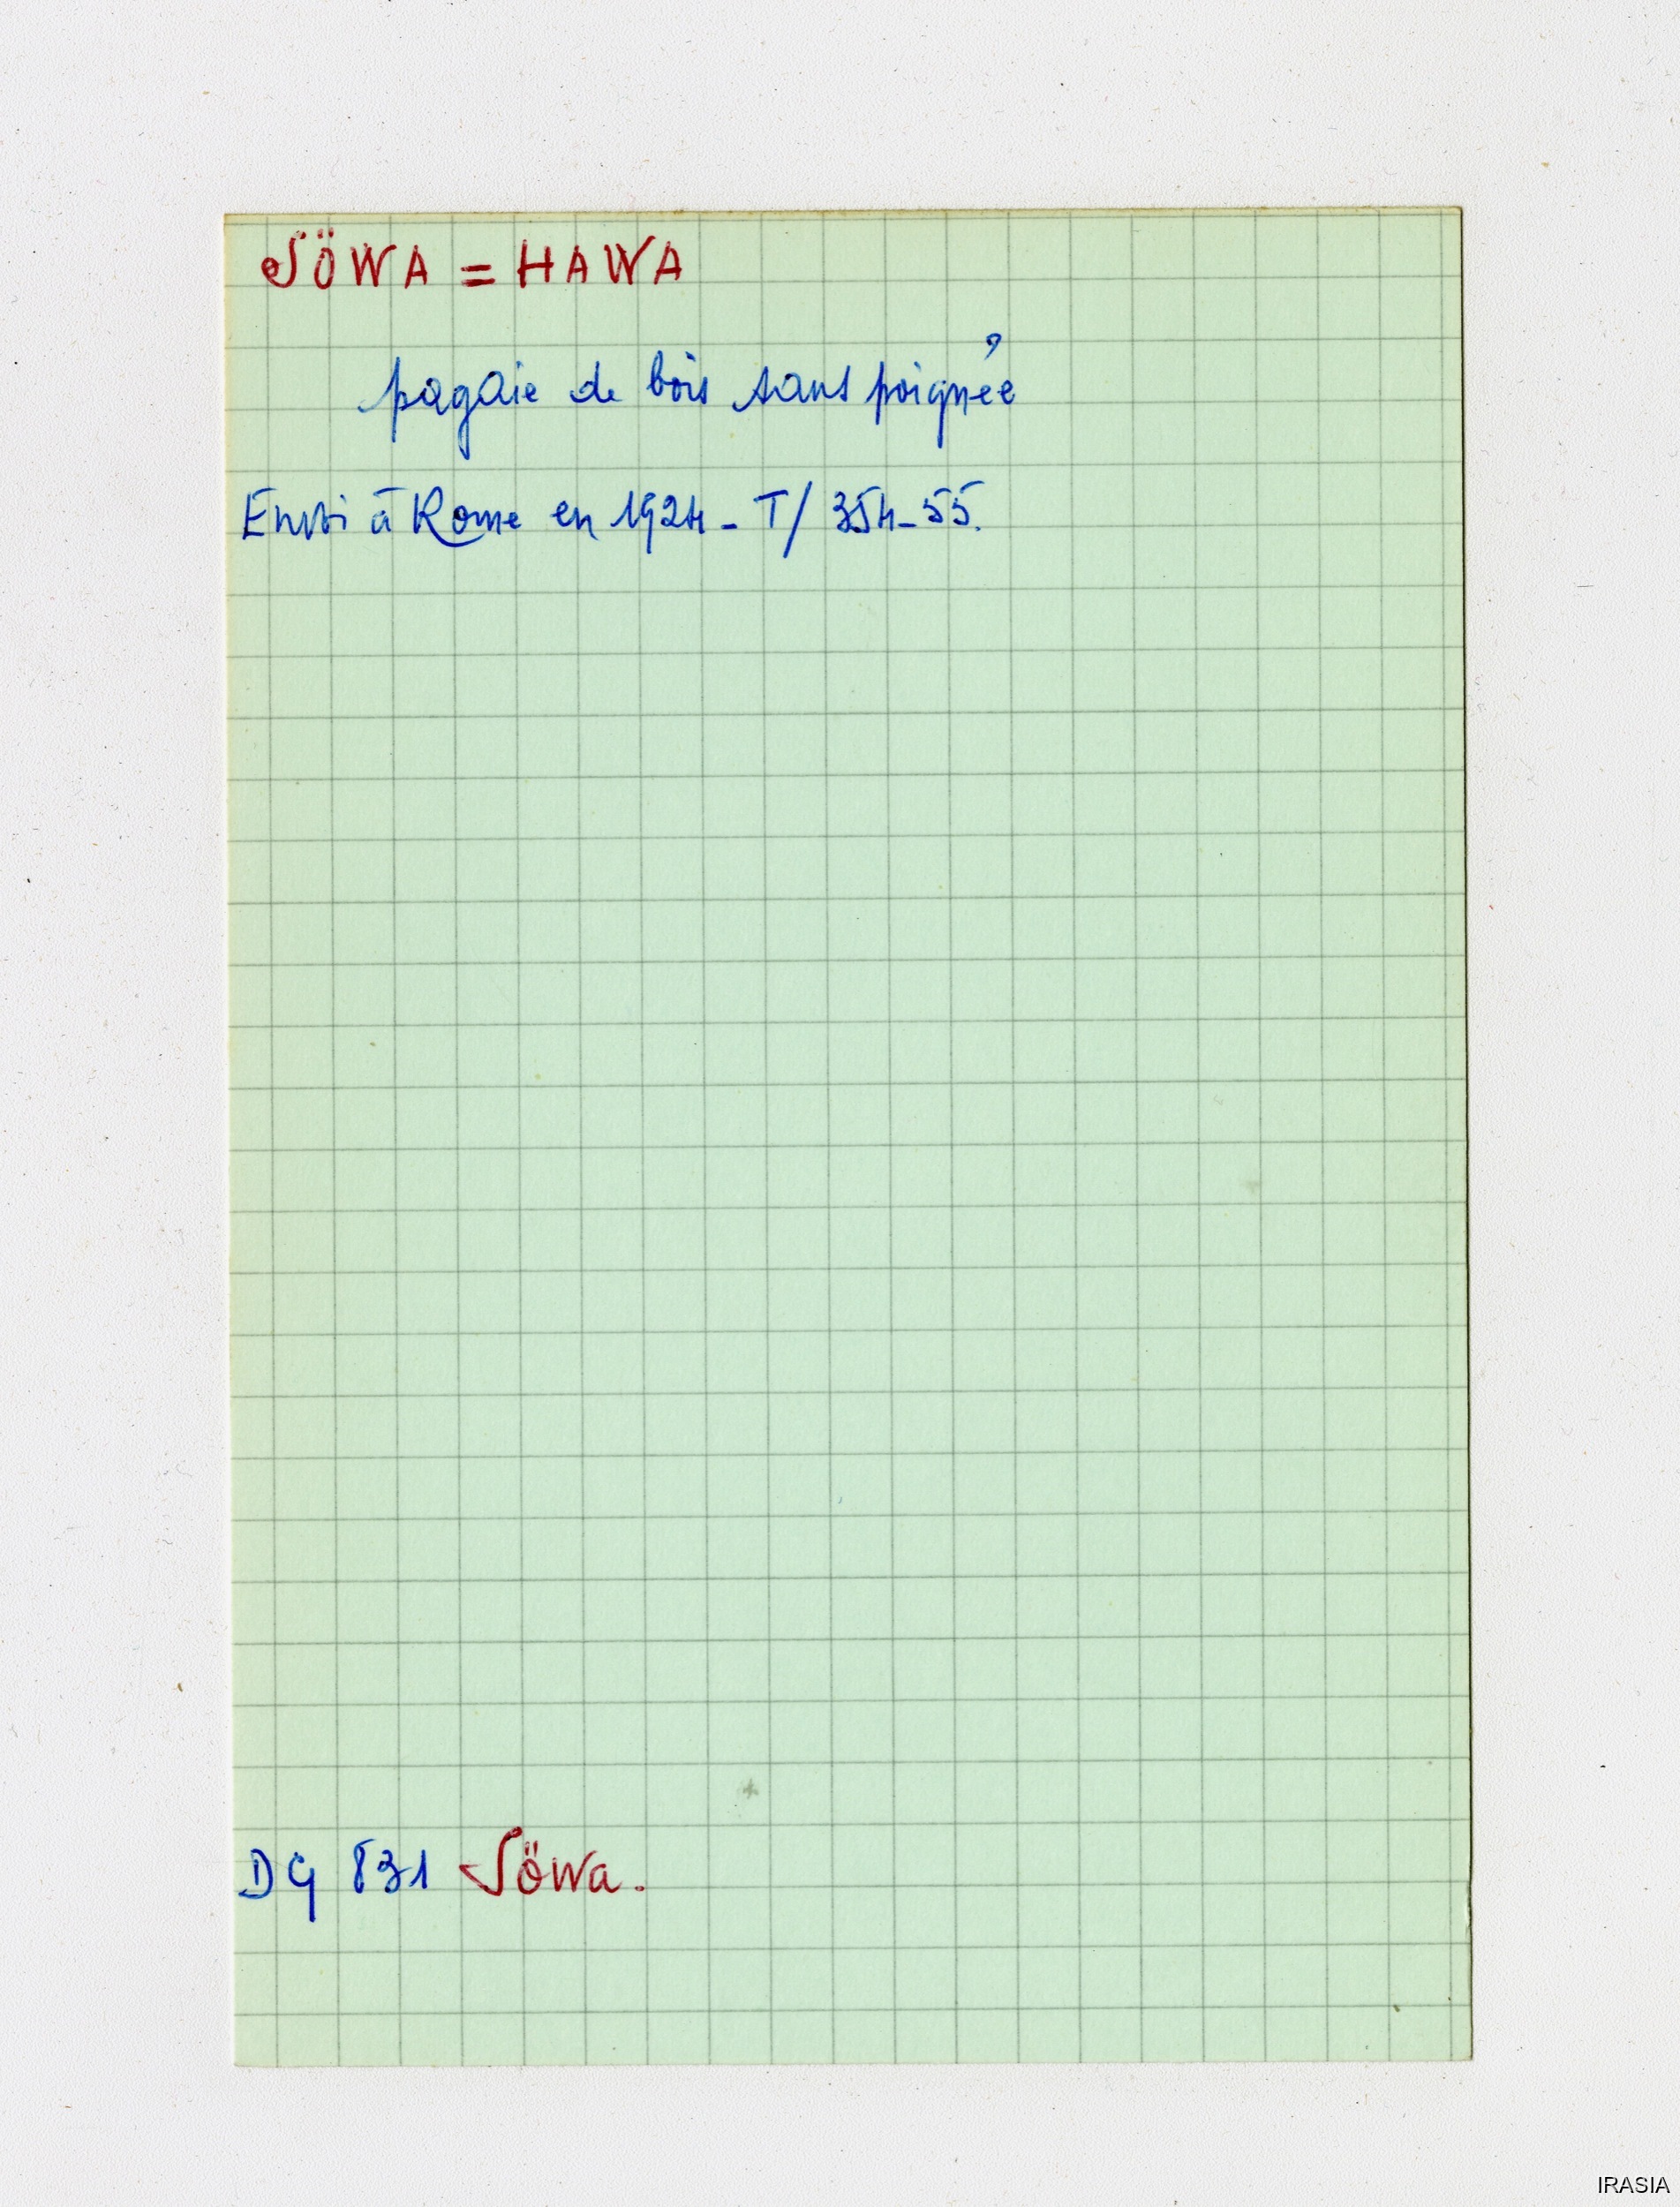 SÖWA = HAWA
pagaie de bois sans poignée
Envoi à Rome en 1924 - T/ 354-55.
DG 831 Söwa.
IRASIA